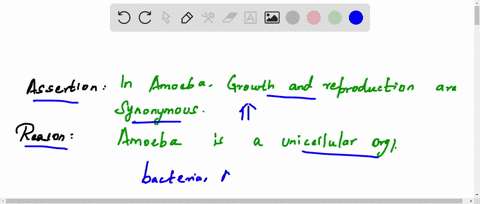 Assertion: In Amoeba. Growth and reproduction are
Synonymous.
Reason: Amoeba is a unicellular org).
bacteria,